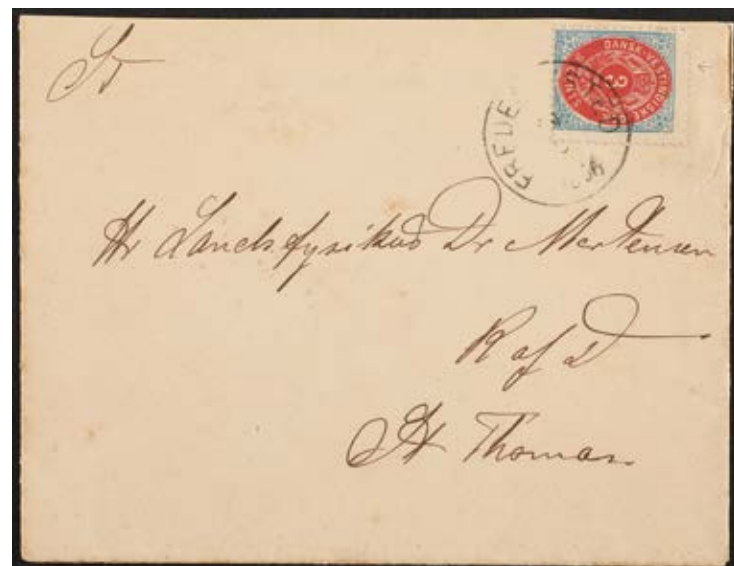 DANSK-VESTINDISKE
3
FREDE
Hr Landsfysikus Dr Mortensen
R af D
St Thomas